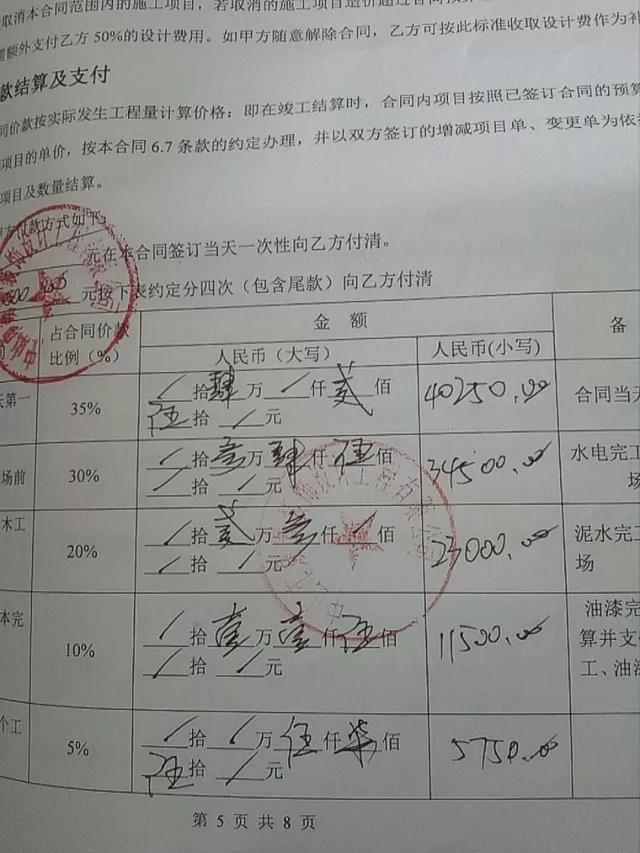 取消本合同范围内的施工项目，若取消的施工项目造价超过合同
额外支付乙方 50%的设计费用。如甲方随意解除合同，乙方可按此标准收取设计费作为补
款结算及支付
同价款按实际发生工程量计算价格：即在竣工结算时，合同内项目按照已签订合同的预算
项目的单价，按本合同 6.7 条款的约定办理，并以双方签订的增减项目单、变更单为依
项目及数量结算。
付款方式如下：
元在本合同签订当天一次性向乙方付清。
元按下表约定分四次（包含尾款）向乙方付清
占合同价款
比例（%）
金 额
备
人民币（大写）
人民币(小写)
天第一
35%
/拾肆万/仟贰佰
伍拾/元
40250.00
合同当
场前
30%
/拾叁万肆仟伍佰
/拾/元
34500.00
水电完工
场
木工
20%
/拾贰万叁仟/佰
/拾/元
23000.00
泥水完工
场
本完
10%
/拾壹万壹仟伍佰
/拾/元
11500.00
油漆完
算并支
工、油漆
个工
5%
/拾/万伍仟柒佰
伍拾/元
5750.00
第 5 页 共 8 页